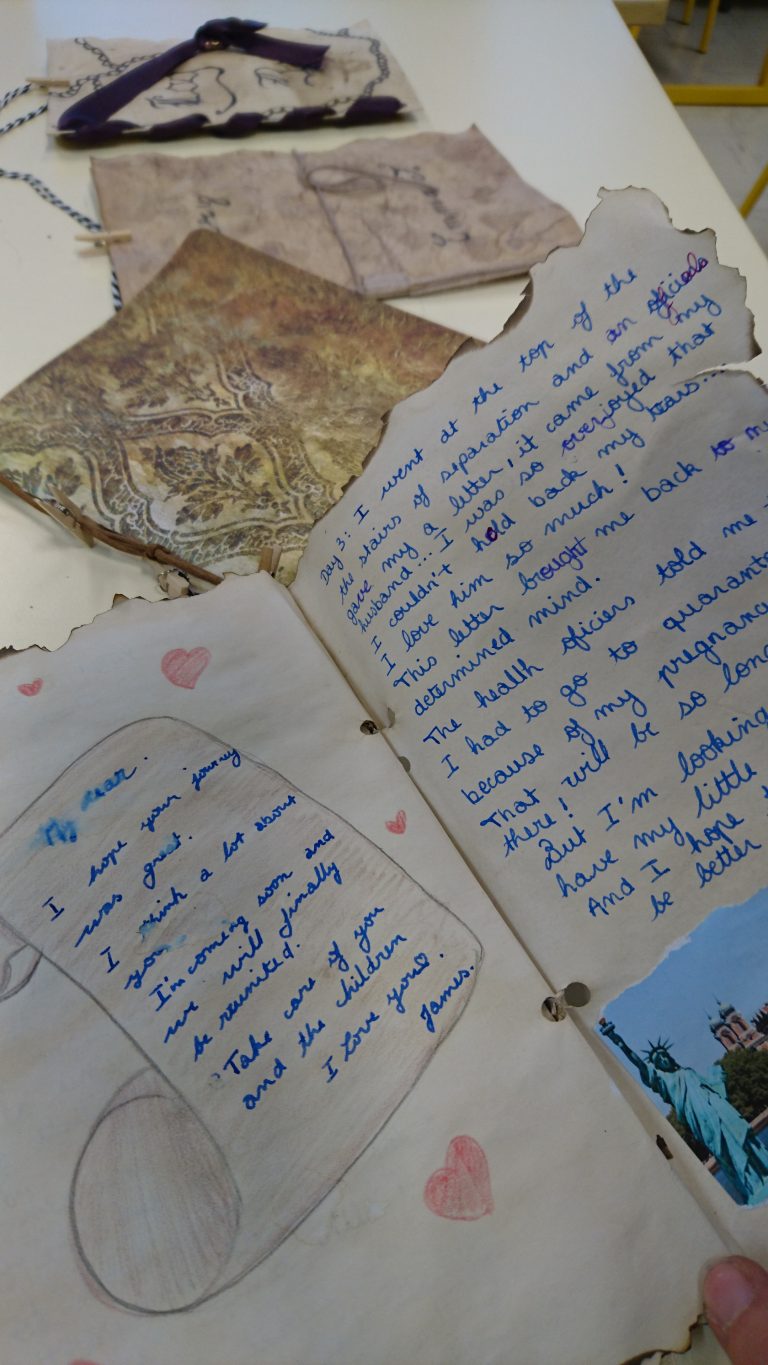 My dear.
I hope your journey
was great.
I think a lot about
you
I'm coming soon and
we will finally
be reunited.
Take care of you
and the children
I Love you♡.
James.
Day 3: I went at the top of the
the stairs of separation and an oficials
gave my a letter, it came from my
husband... I was so overjoyed that
I couldn't hold back my tears...
I love him so much!
This letter brought me back to my
determined mind.
The health oficiers told me
I had to go to
because of my
That will be so
there!
But I'm looking
have my little
And I hope
be better